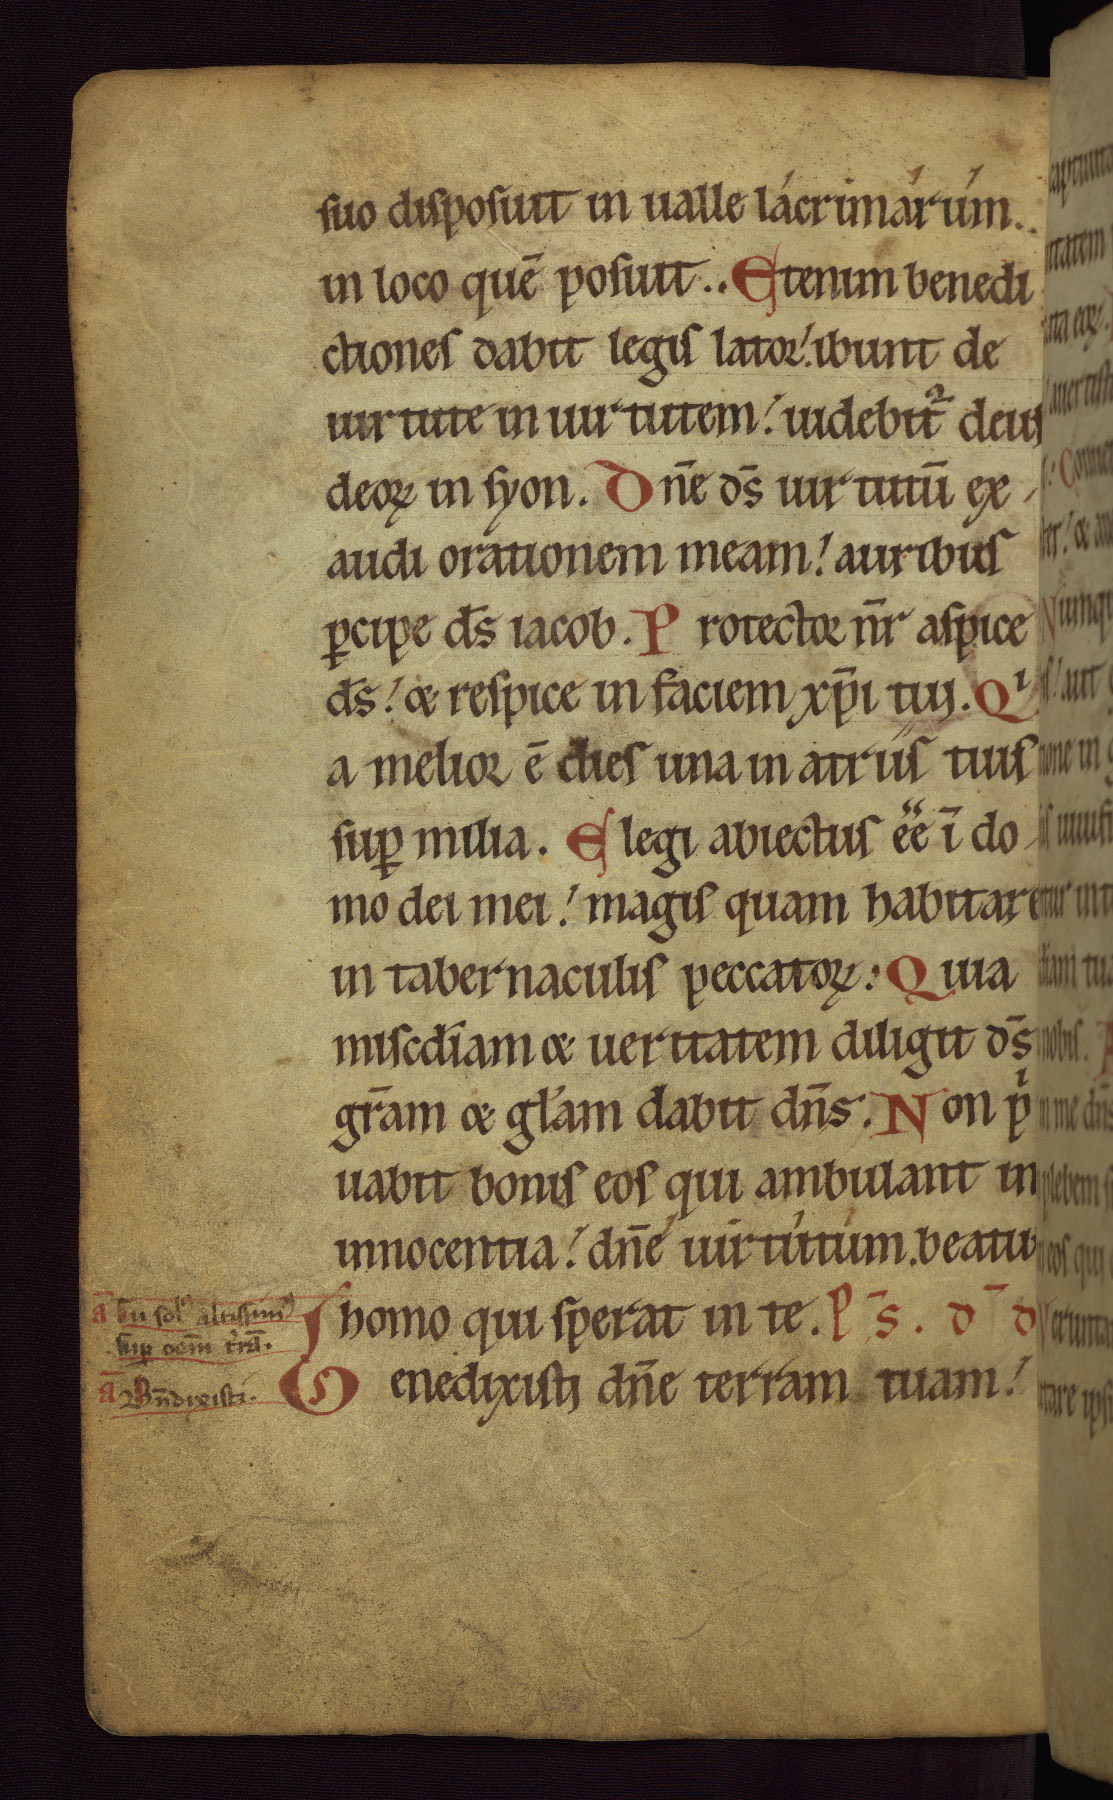 suo disposuit in ualle lácrimárúm..
in loco quē posuit.. Etenim benedi
ctiones dabit legis lator! ibunt de
uirtute in uirtutem! uidebit᷑ deus
deoꝝ in syon. Dn̄e ds̄ uirtutū ex-
audi orationem meam! auribus
ꝑcipe ds̄ iacob. Protector nr̄ aspice
ds̄! & respice in faciem xp̄i tuj. Qi
a melior ē dies una in atriis tuis
suꝑ milia. Elegi abiectus ēē ī do-
mo dei mei! magis quam habitare
in tabernaculis peccatoꝝ: Quia
misc̄diam & ueritatem diligit ds̄
gr̄am & gl̄am dabit dn̄s. Non pⁱ
uabit bonis eos qui ambulant in
innocentia! dn̄e uirtutum. beatu
homo qui sperat in te. Ps̄. d̄ d
Benedixisti dn̄e terram tuam!
ā tu sol᷒ altissim᷒
suꝑ oēm tr̄ā.
ā Bn̄dixisti.